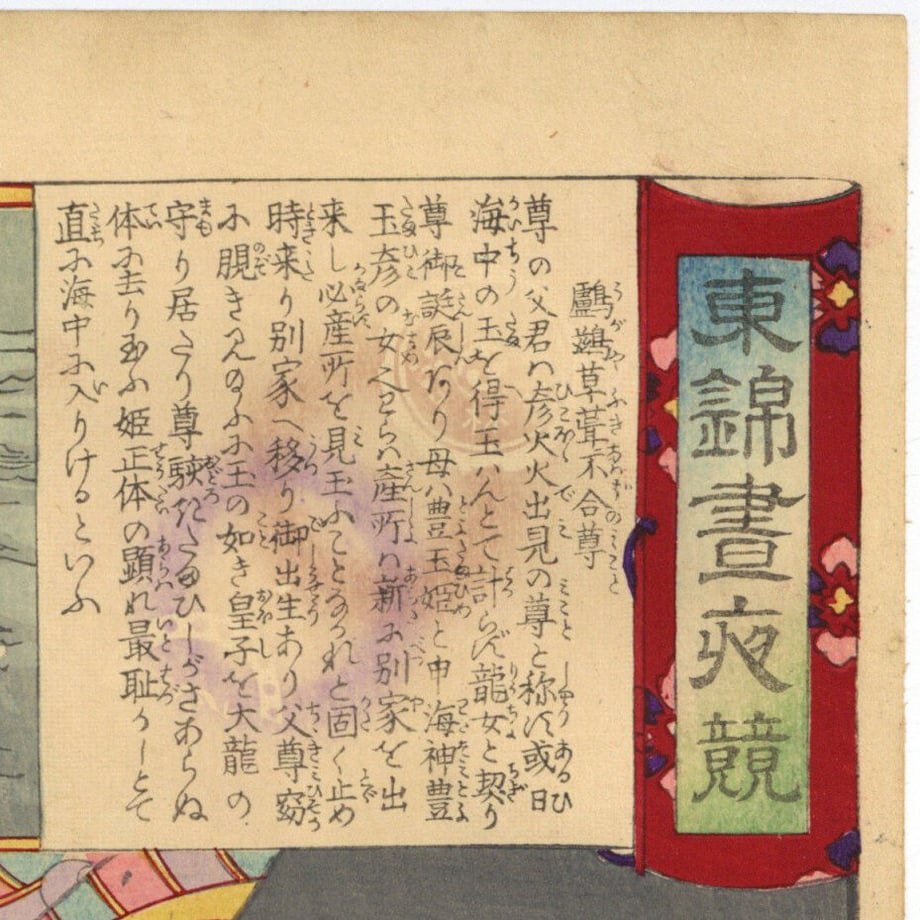 東錦晝夜競
鸕鷀草葺不合尊
尊の父君ハ彦火火出見の尊と称す或日
海中の玉を得玉ハんとて計らず龍女と契り
尊御誕辰あり母ハ豊玉姫と申海神豊
玉彦の女なり
産所ハ新に別家を出
来し必産所を見玉ふことなかれと固く止め
時来り別家へ移り御出生あり父尊窈
に覘き
玉の如き皇子を大龍の
守り居たり尊駭
体に去り玉ふ姫正体の顕れ最恥かしとて
直に海中に入りけるといふ